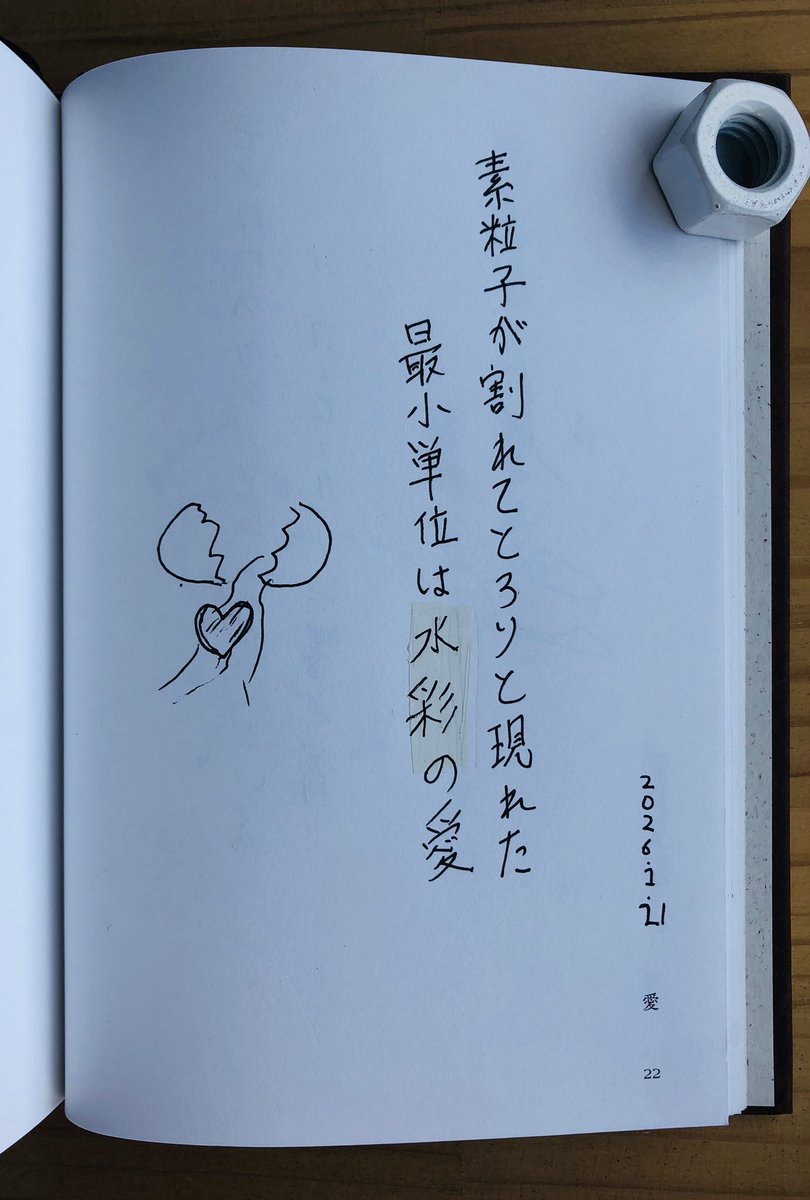 2026.1.21
素粒子が割れてとろりと現れた
最小単位は水彩の愛
愛
22